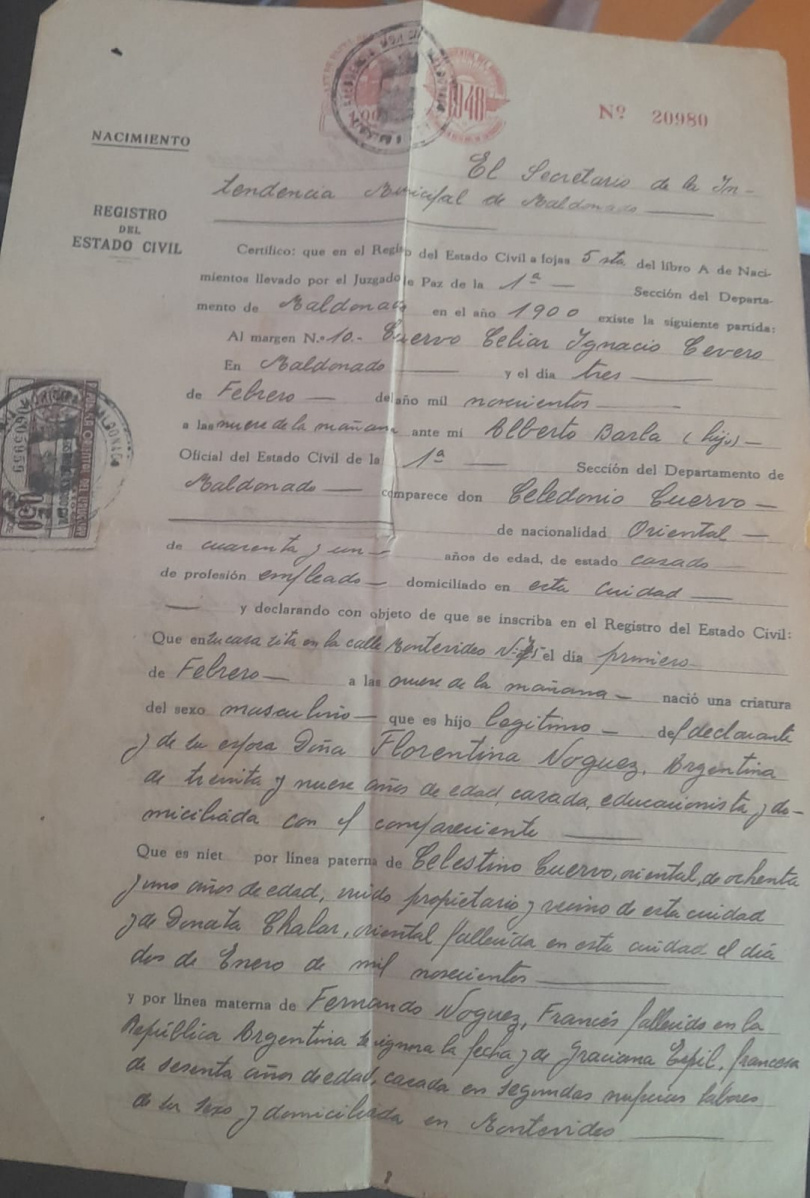 1948
Nº 20980
NACIMIENTO
El Secretario de la In-
tendencia Municipal de Maldonado
REGISTRO
DEL
ESTADO CIVIL
Certifico: que en el Registro del Estado Civil a fojas 5 sta del libro A de Naci-
mientos llevado por el Juzgado de Paz de la 1ª Sección del Departa-
mento de Maldonado en el año 1900 existe la siguiente partida:
Al margen N.º 10. Cuervo Celiar Ignacio Cevero
En Maldonado y el dia tres
de Febrero del año mil novecientos
a las nueve de la mañana ante mi Alberto Barla (hijo)
Oficial del Estado Civil de la 1ª Sección del Departamento de
Maldonado comparece don Celedonio Cuervo
de nacionalidad Oriental
de cuarenta y un años de edad, de estado casado
de profesión empleado domiciliado en esta ciudad
y declarando con objeto de que se inscriba en el Registro del Estado Civil:
Que en su casa sita en la calle Montevideo el dia primero
de Febrero a las nueve de la mañana nació una criatura
del sexo masculino que es hijo legitimo del declarante
y de su esposa Doña Florentina Noguez, Argentina
de treinta y nueve años de edad, casada, educacionista y do-
miciliada con el compareciente
Que es niet por línea paterna de Celestino Cuervo, oriental, de ochenta
y uno años de edad, viudo propietario y vecino de esta cuidad
y de Donata Chalar, oriental fallecida en esta cuidad el día
dos de Enero de mil novecientos
y por línea materna de Fernando Noguez, Francés fallecido en la
República Argentina se ignora la fecha y de Graciana Espil, francesa
de sesenta años de edad, casada en segundas nupcias labores
de su sexo y domiciliada en Montevideo